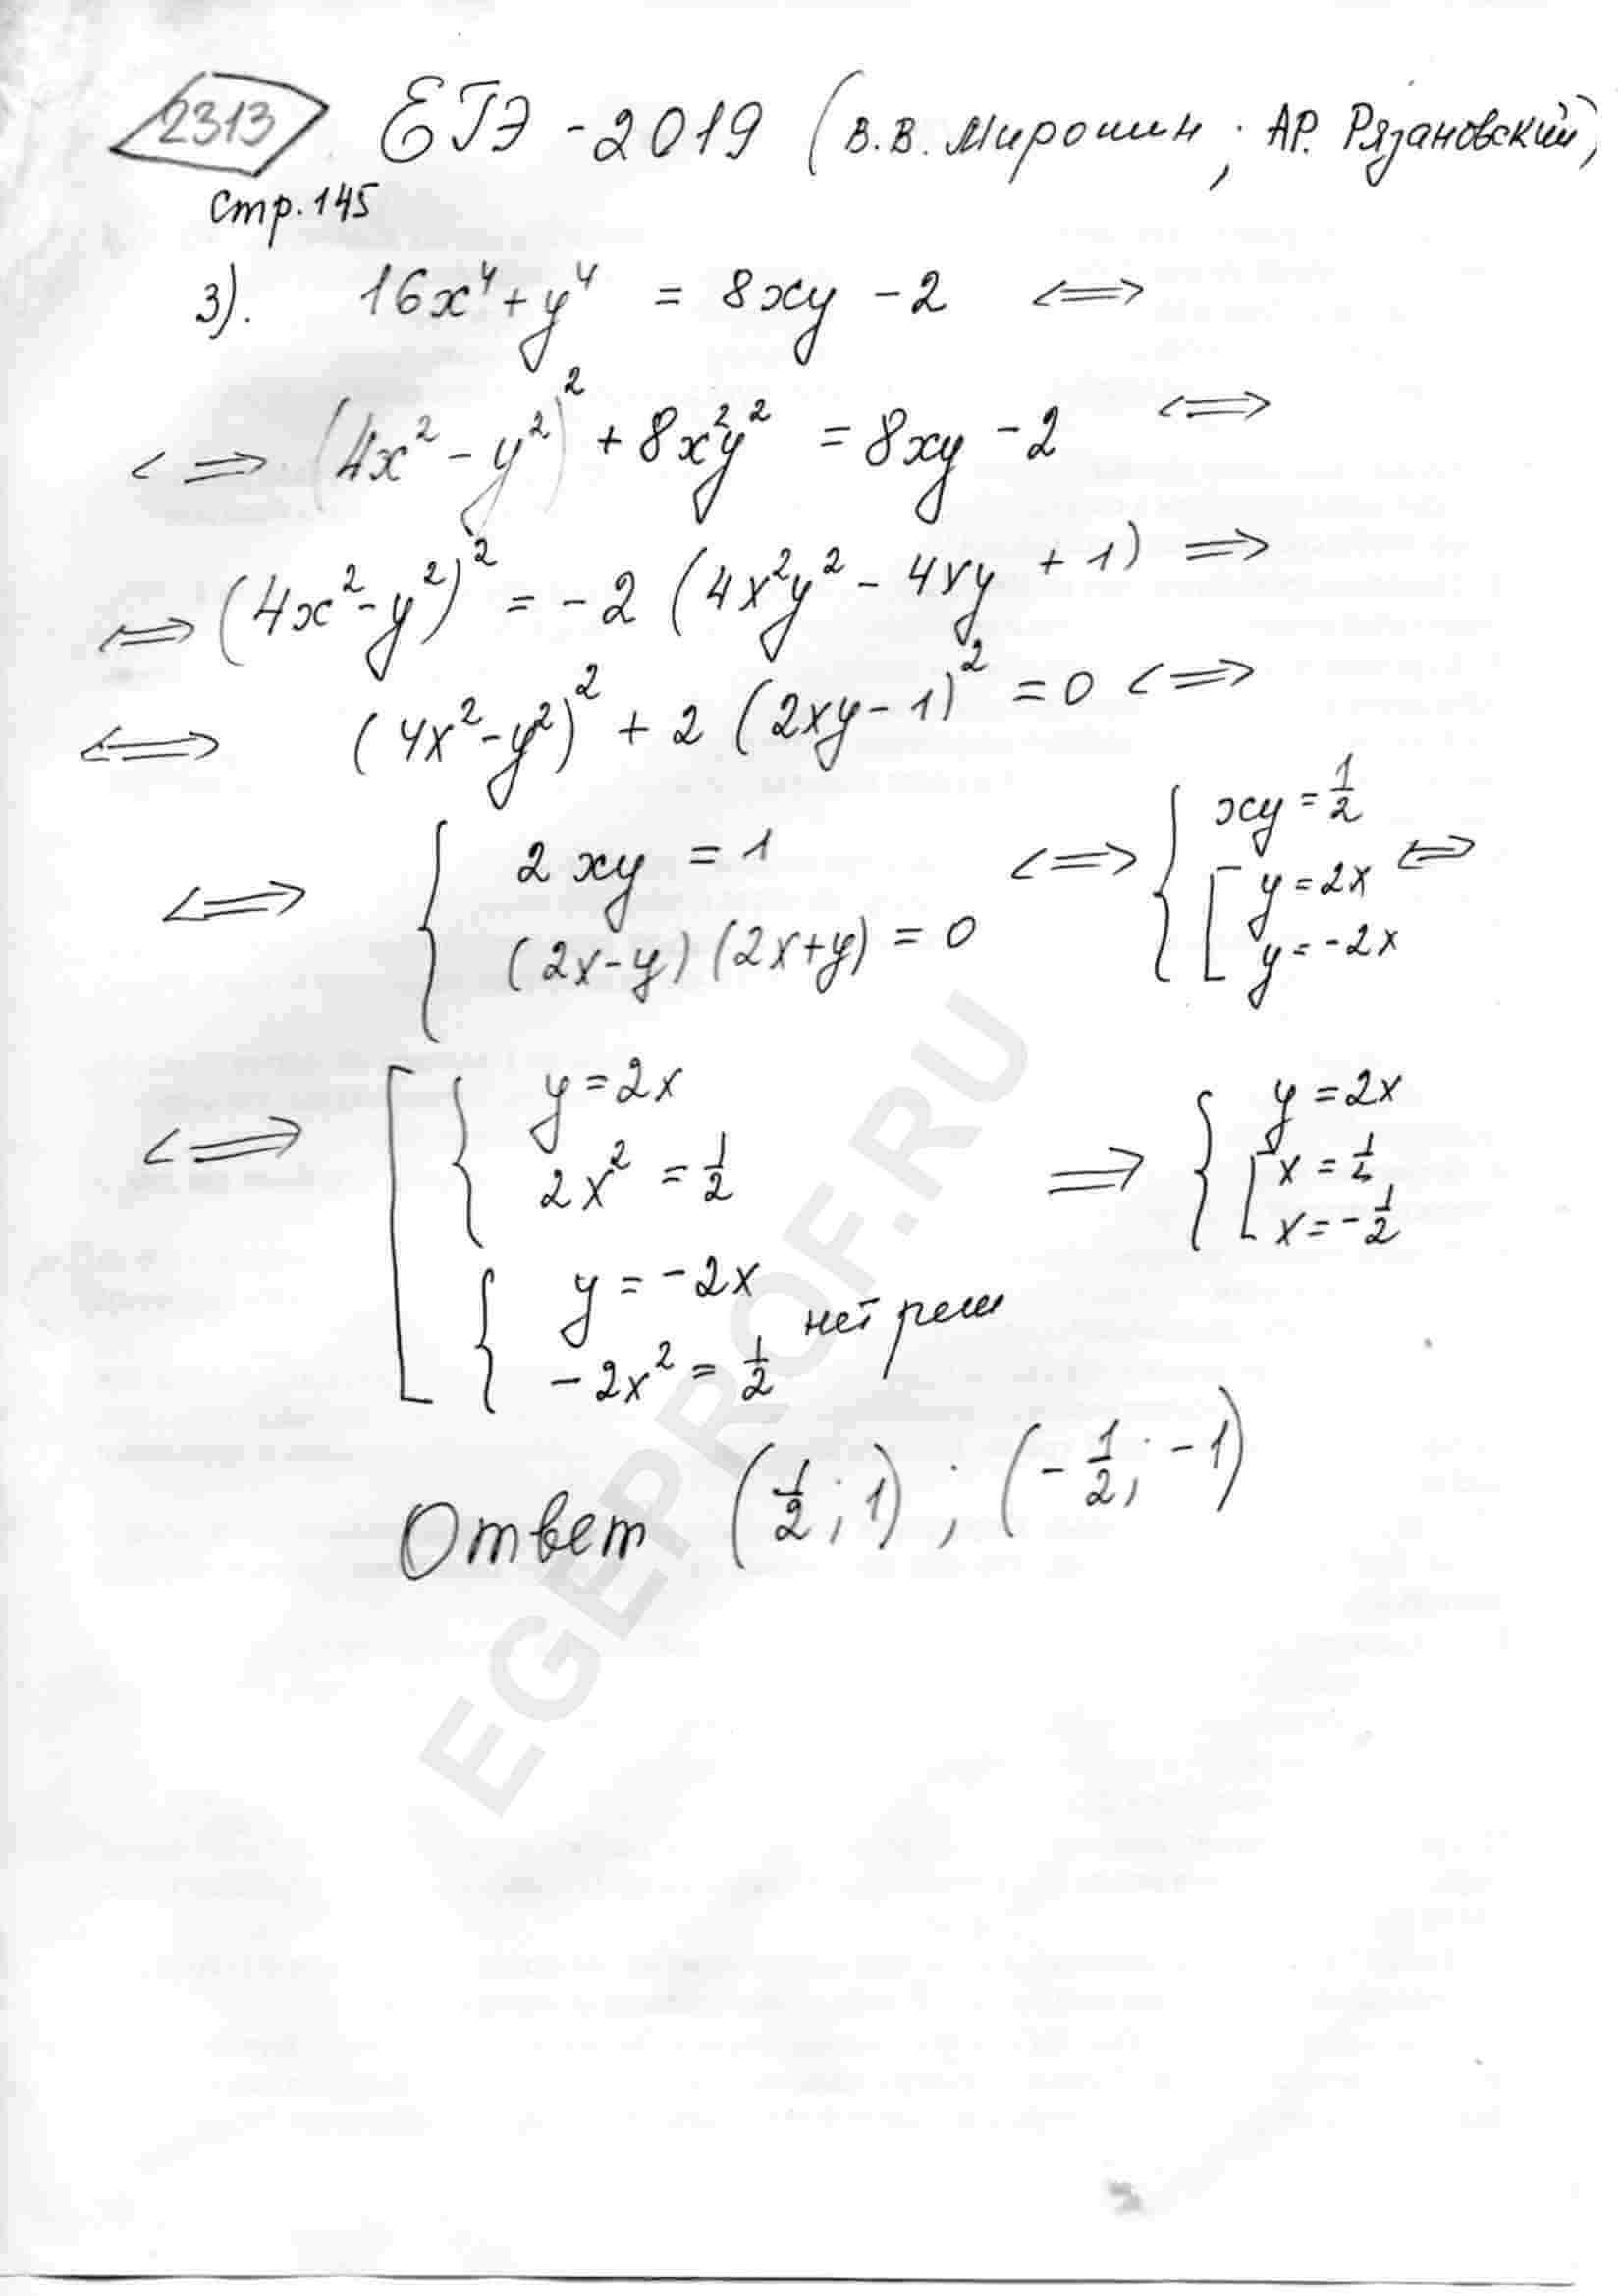 2313 ЕГЭ - 2019 (В.В. Мирошин; А.Р. Рязановский)
стр. 145
3). 16x⁴ + y⁴ = 8xy - 2 <=>
<=> (4x² - y²)² + 8x²y² = 8xy - 2 <=>
<=> (4x² - y²)² = -2 (4x²y² - 4xy + 1) =>
<=> (4x² - y²)² + 2 (2xy - 1)² = 0 <=>
<=> { 2xy = 1 (2x - y)(2x + y) = 0 <=> { xy = 1/2 [ y = 2x y = -2x <=>
<=> [ { y = 2x 2x² = 1/2 => { y = 2x [ x = 1/2 x = -1/2
{ y = -2x -2x² = 1/2 нет реш
Ответ (1/2; 1); (-1/2; -1)
EGEPROF.RU